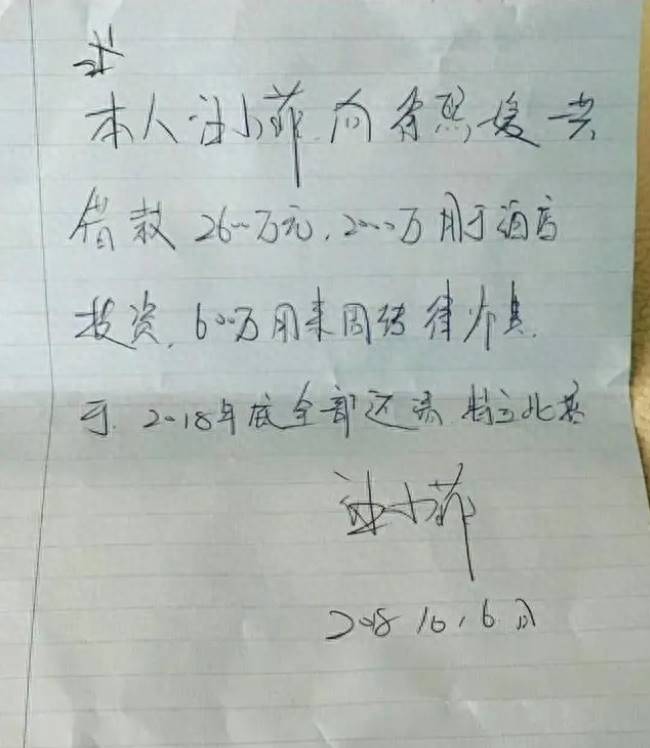 本人汪小菲向徐熙媛共
借款2600万元,2000万用于酒店
投资,600万用来周转律师费.
于.2018年底全部还清 特立此
汪小菲
2018 10,6日